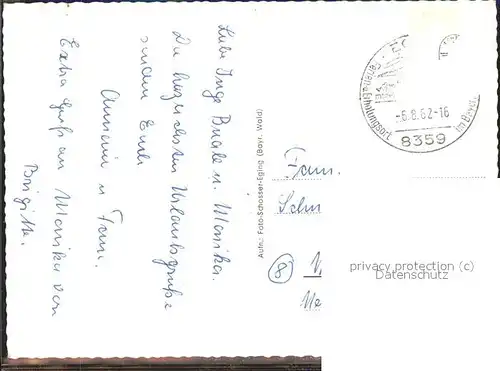 Liebe Inge Beate u. Monika.
Die herzlichsten Urlaubsgrüße
senden Euch
u. Fam.
Extra Gruß an Monika von
Brigitte.
Aufn.: Foto-Schosser-Eging (Bayr. Wald)
Ferien-Erholungsort
im Bayr.
-6.8.62-16
8359
Fam.
8
privacy protection (c)
Datenschutz